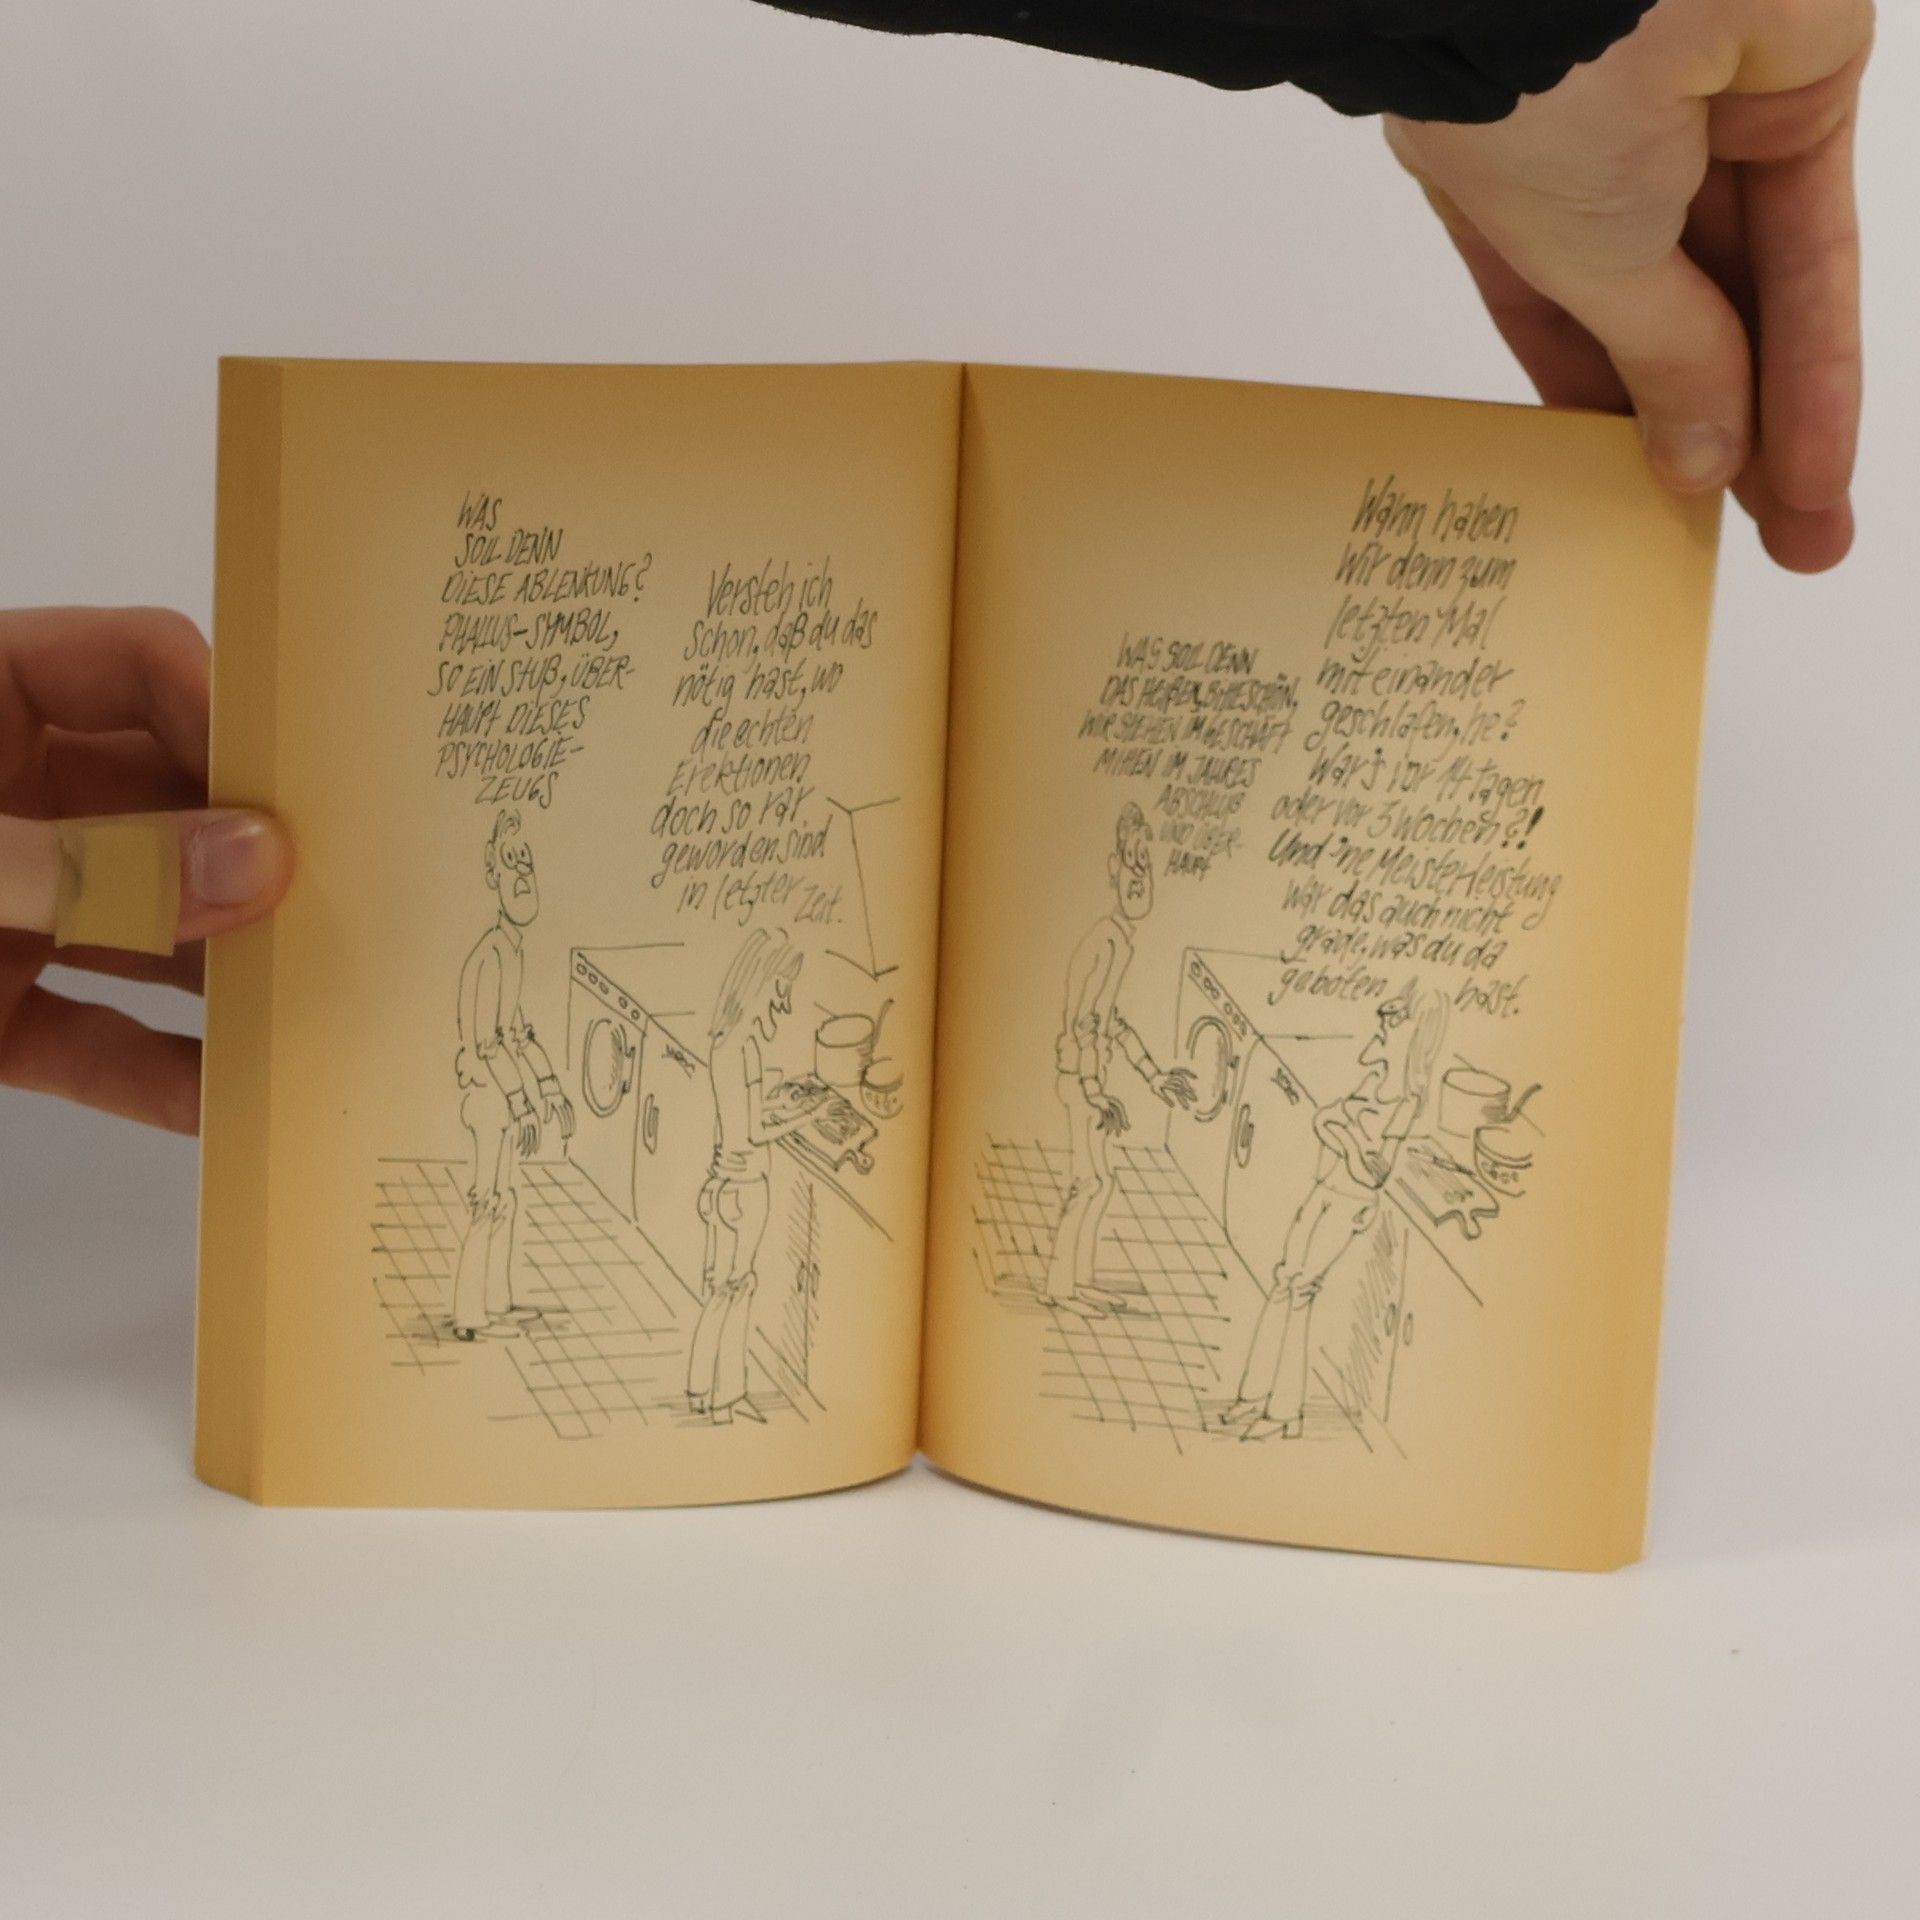 WAS
SOLL DENN
DIESE ABLENKUNG?
PHALLUS-SYMBOL,
SO EIN STUß, ÜBER-
HAUPT DIESES
PSYCHOLOGIE-
ZEUGS
Versteh ich
schon, daß du das
nötig hast, wo
die echten
Erektionen
doch so rar
geworden sind
in letzter Zeit.
WAS SOLL DENN
DAS HEIßEN, BITTESCHÖN,
WIR STEHEN IM GESCHÄFT
MITTEN IM JAHRES
ABSCHLUß
UND ÜBER-
HAUPT
Wann haben
wir denn zum
letzten Mal
miteinander
geschlafen, he?
War's vor 14 tagen
oder vor 3 Wochen?!
Und 'ne Meisterleistung
war das auch nicht
grade, was du da
geboten hast.